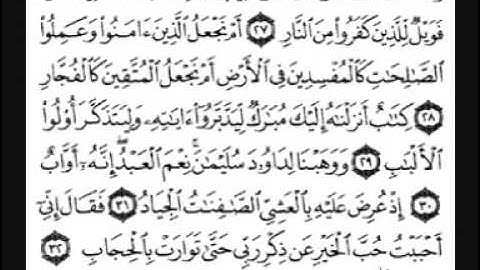 فَوَيْلٌ لِّلَّذِينَ كَفَرُوا۟ مِنَ ٱلنَّارِ ٢٧ أَمْ نَجْعَلُ ٱلَّذِينَ ءَامَنُوا۟ وَعَمِلُوا۟
ٱلصَّـٰلِحَـٰتِ كَٱلْمُفْسِدِينَ فِى ٱلْأَرْضِ أَمْ نَجْعَلُ ٱلْمُتَّقِينَ كَٱلْفُجَّارِ
٢٨ كِتَـٰبٌ أَنزَلْنَـٰهُ إِلَيْكَ مُبَـٰرَكٌ لِّيَدَّبَّرُوٓا۟ ءَايَـٰتِهِۦ وَلِيَتَذَكَّرَ أُو۟لُوا۟
ٱلْأَلْبَـٰبِ ٢٩ وَوَهَبْنَا لِدَاوُۥدَ سُلَيْمَـٰنَ ۚ نِعْمَ ٱلْعَبْدُ ۖ إِنَّهُۥٓ أَوَّابٌ
٣٠ إِذْ عُرِضَ عَلَيْهِ بِٱلْعَشِىِّ ٱلصَّـٰفِنَـٰتُ ٱلْجِيَادُ ٣١ فَقَالَ إِنِّىٓ
أَحْبَبْتُ حُبَّ ٱلْخَيْرِ عَن ذِكْرِ رَبِّى حَتَّىٰ تَوَارَتْ بِٱلْحِجَابِ ٣٢